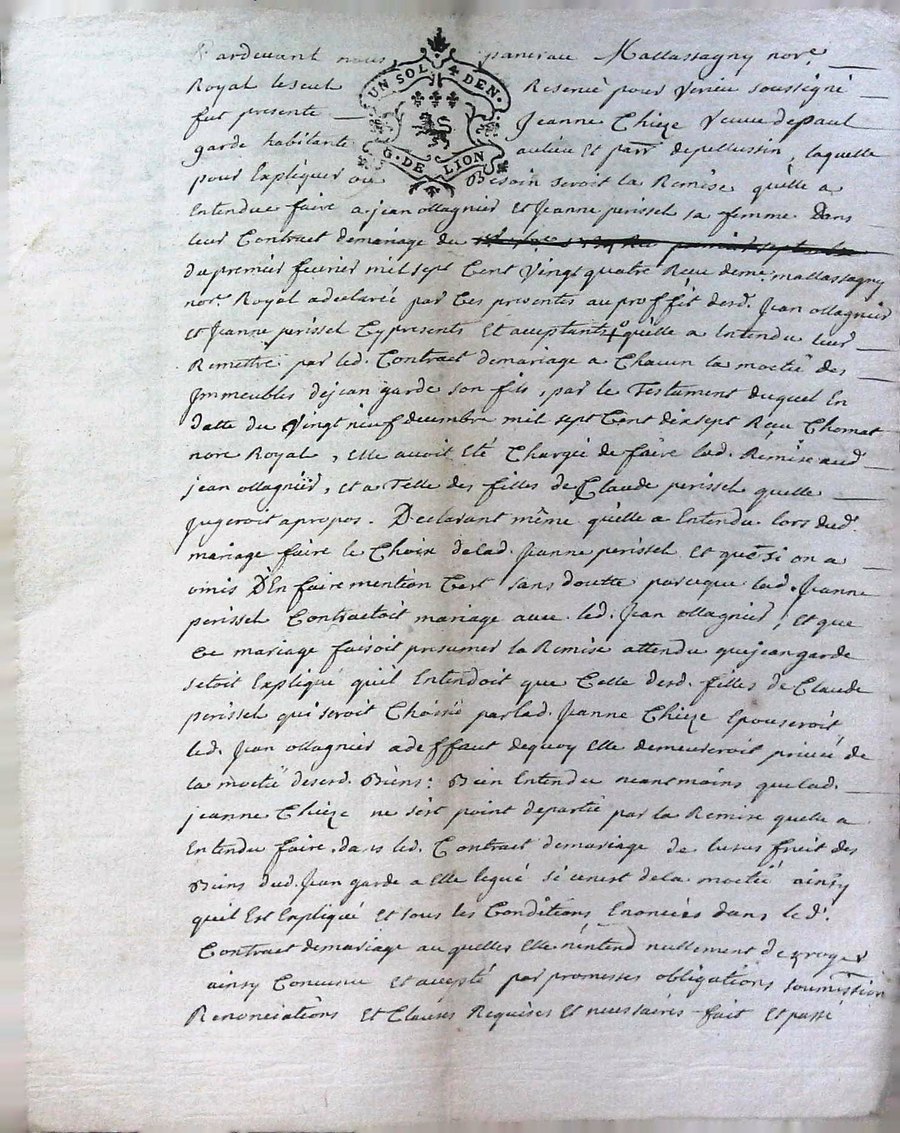 Pardevant nous pancrace Mallassagny nore.
UN SOL 4 DEN.
G. DE LION
Royal le seul Reservé pour Vernie soussigné
fut presente Jeanne Chieze Veuve de paul
garde habitante au lieu Et parr. de pellussin, laquelle
pour Expliquer au Besoin seroit la Remise qu'elle a
Entendue faire a jean ollagnier Et Jeanne perissel sa femme Dans
leur Contract de mariage du
du premier fevrier mil sept Cent Vingt quatre Receu de me. mallassagny
nore. Royal a declaré par Ces presentes au proffit desd. Jean ollagnier
et Jeanne perissel Cy presents Et acceptants, qu'elle a Entendu leur
Remettre par led. Contract de mariage a Chacun la moctié des
Jmmeubles de jean garde son fils, par le Testament duquel En
datte du Vingt neuf decembre mil sept Cent dix sept Receu Thomas
nore Royal, Elle avoit Eté Chargée de faire lad. Remise aud.
jean ollagnier, et a Telle des filles de Claude perissel quelle
Jugeroit apropos. Declarant même qu'elle a Entendu lors dud.
mariage faire le Choix de lad. Jeanne perissel Et que si on a
omis D'En faire mention C'est sans doutte parceque lad. Jeanne
perissel Contractoit mariage avec led. Jean ollagnier, Et que
Ce mariage faisoit presumer la Remise attendu que jean garde
setoit Expliqué quil Entendoit que Celle desd. filles de Claude
perissel qui seroit Choisie par lad. Jeanne Chieze Epouseroit
led. Jean ollagnier a deffaut dequoy Elle demeureroit privée de
la moctié desd. Biens: Bien Entendu neantmoins que lad.
jeanne Chieze ne s'est point departie par la Remise quelle a
Entendu faire dans led. Contract de mariage de lusufruit des
Biens dud. Jean garde a Elle legué si cenest de la moctié ainsy
quil Est Expliqué et sous les Conditions Enoncées dans led.
Contract de mariage auquelles Elle n'entend nullement deroger
ainsy Convenu et accepté par promesses obligations soumission
Renonciations Et Clauses Requises Et necessaires fait Et passé